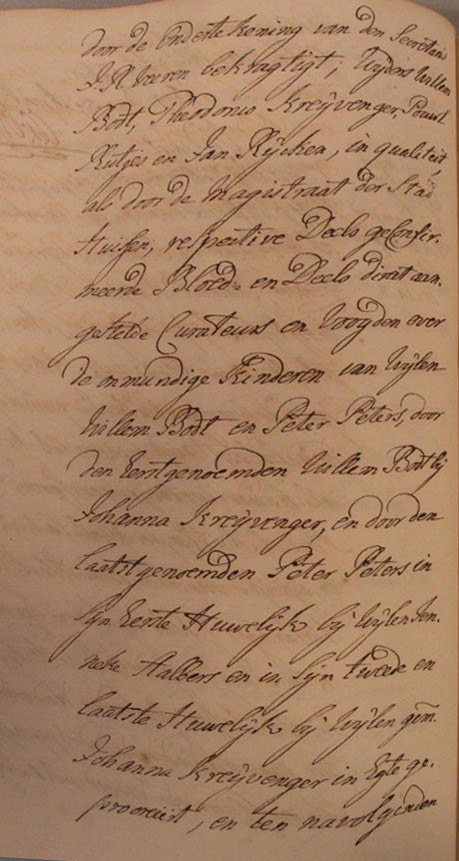 door de onderteekening van den Secretaris
J. R. Veeren bekragtigt; Wijders Willem
Bodt, Theodorus Kreijvenger, Pouwl
Rutjes en Jan Rijcken, in qualiteit,
als door de Magistraat der Stad
Huissen, respective Deels geconfir-
meerde Bloed- en Deels direct aan-
gestelde Curateurs en Voogden over
de onmundige Kinderen van Wijlen
Willem Bodt en Peter Peters, door
den Eerstgenoemden Willem Bodt bij
Johanna Kreijvenger, en door den
laatstgenoemden Peter Peters in
sijn Eerste Huwelijk bij Wijlen Jen-
neke Aalbers en in sijn twede en
laatste Huwelijk bij Wijlen gem.
Johanna Kreijvenger in Egte ge-
procreëert, en ten navolgenden